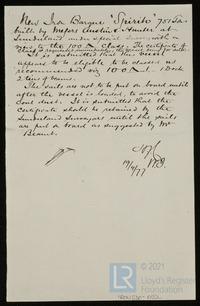 New Iron Barque "Spirito" 
built by Messrs Austin & Hunter at
Sunderland under Special Survey with a
view to the 100A Class. The certificate of
It is submitted that this vessel
appears to be eligible to be classed as
recommended viz 100A1. 1 Deck
2 tiers of beams.
The sails are not to put on board until
after the vessel is loaded, to avoid the
Coal dust. It is submitted that the
Certificate should be retained by the
Sunderland Surveyors until the sails
are put on board as suggested by Mr
19/4/77
© 2021
Lloyd's Register
Foundation